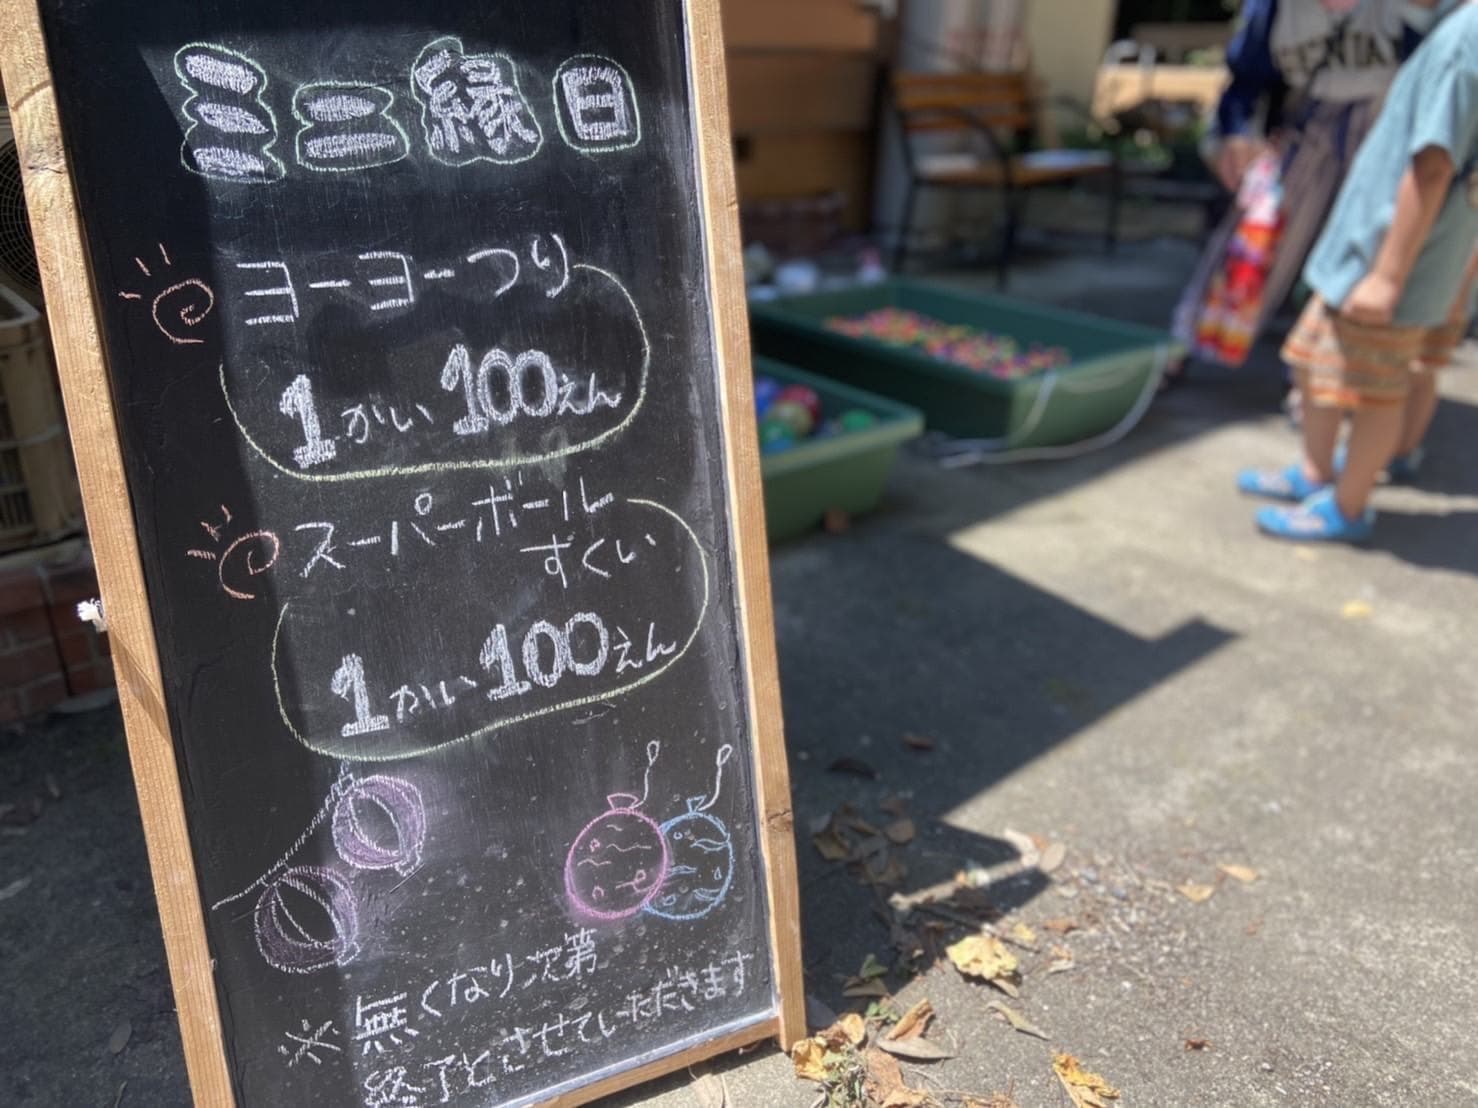 ミニ縁日
ヨーヨーつり
1かい100えん
スーパーボール
すくい
1かい100えん
※無くなり次第
終了とさせていただきます